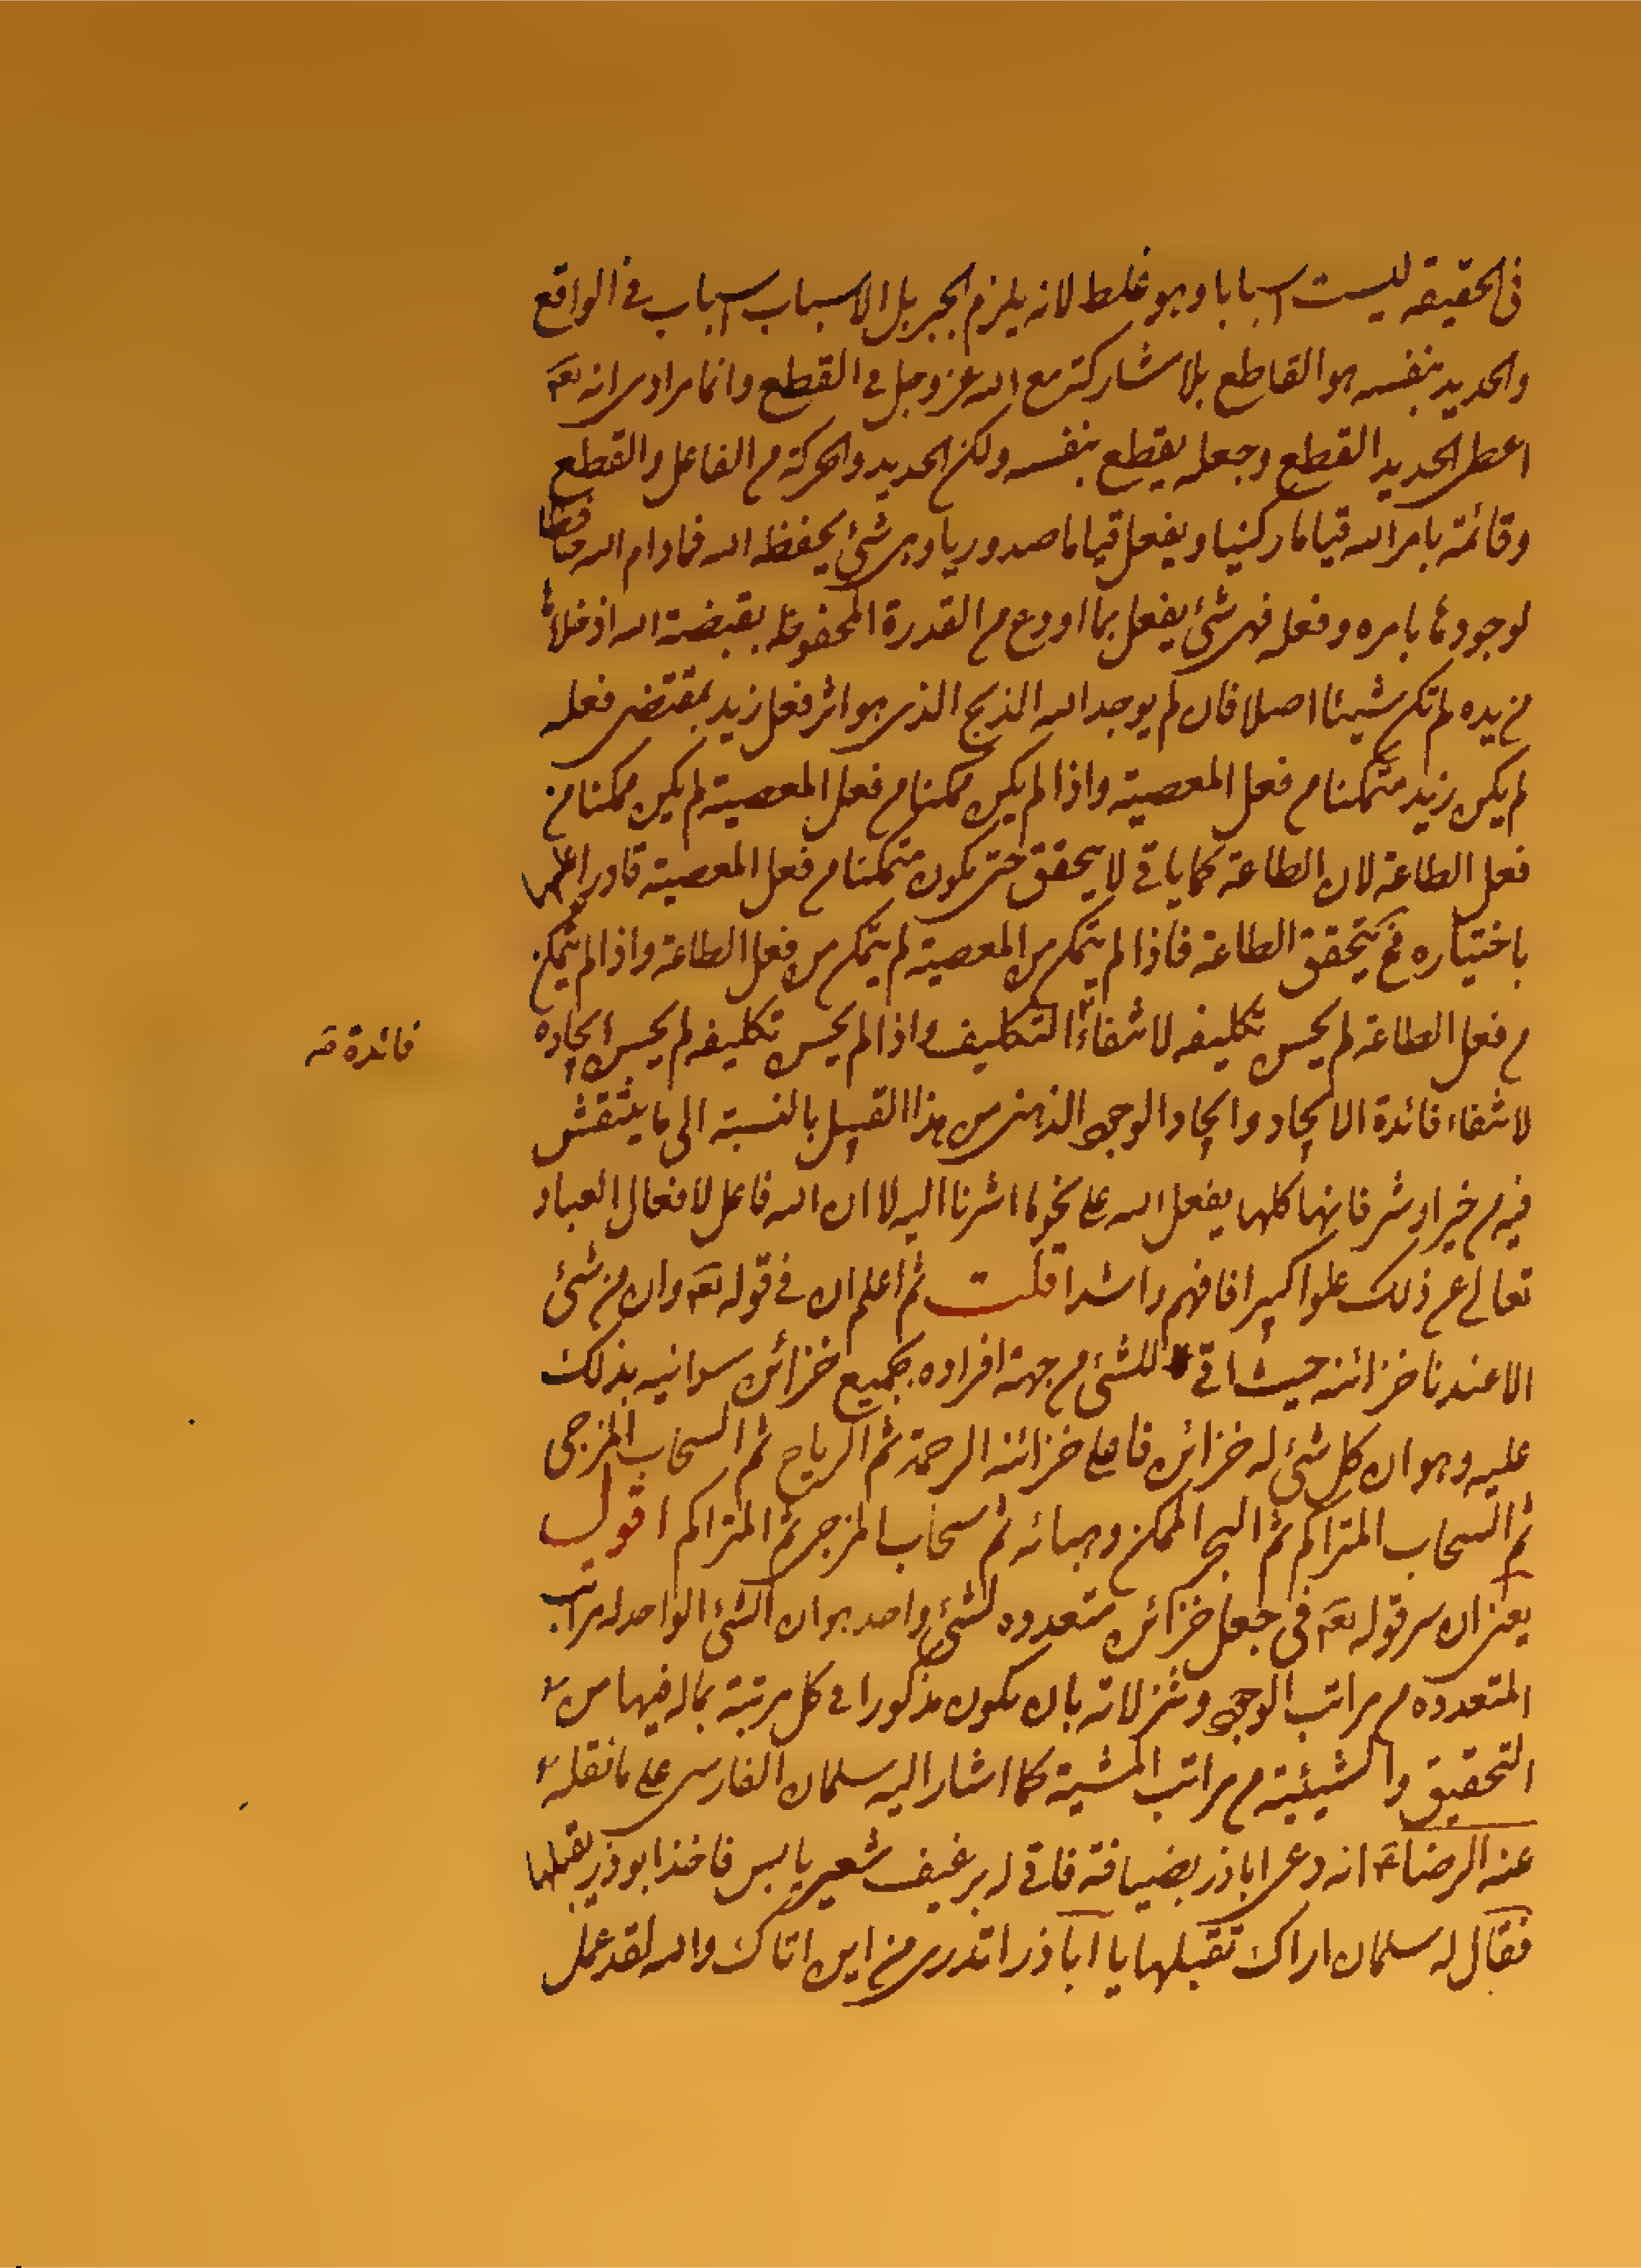 فى الحقيقه ليست اسبابا وهو غلط لانه يلزم الجبر بل الاسباب اسباب فى الواقع
والحديد بنفسه هو القاطع بلا مشاركة مع الله عز وجل فى القطع وانما مرادى انه تعه
اعطى الحديد القطع وجعله يقطع بنفسه ولكن الحديد والحركة من الفاعل والقطع
وقائمة بامر الله قياما ركنيا وبفعل قياما صدوريا وهى شئ يحفظ الله فما دام الله حافظا
لوجودها بامره وفعله فهى شئ يفعل بما اودع من القدرة المحفوظه بقبضة الله اذ خلاها
من يده لم تكن شيئا اصلا فان لم يوجد الله الذبح الذى هو اثر فعل زيد بمقتضى فعله
لم يكن زيد متمكنا من فعل المعصية واذا لم يكن ممكنا من فعل المعصية لم يكن ممكنا من
فعل الطاعة لان الطاعة كما ياتى لا يتحقق حتى يكون متمكنا من فعل المعصية قادرا عليها
باختياره فح يتحقق الطاعة فاذا لم يتمكن من المعصية لم يتمكن من فعل الطاعة واذا لم يتمكن
من فعل الطاعة لم يحسن تكليفه لانتفاء التكليف واذا لم يحسن تكليفه لم يحسن ايجاده
فائدة مه
لانتفاء فائدة الايجاد وايجاد الوجود الذهنى من هذا القبيل بالنسبة الى ما ينتقش
فيه من خير او شر فانها كلها بفعل الله على نحو ما اشرنا اليه لا ان الله فاعل لافعال العباد
تعالى عن ذلك علوا كبيرا فافهم راشدا قلت ثم اعلم ان فى قوله تعه وان من شئ
الا عندنا خزائنه حيث اتى للشئ من جهة افراده بجميع خزائن سرا نبه بذلك
عليه وهو ان كل شئ له خزائن فاعلى خزائنه الرحمة ثم الرياح ثم السحاب المزجى
ثم السحاب المتراكم ثم البحر الممكن وهبائه ثم سحاب المزجى ثم المتراكم اقول
يعنى ان سر قوله تعه فى جعل خزائن متعدده لشئ واحد هو ان الشئ الواحد له مراتب
المتعدده من مراتب الوجود وتنزلاته بان يكون مذكورا فى كل مرتبة بما له فيها من
التحقيق والشيئية من مراتب المشية كما اشار اليه سلمان الفارسى على ما نقله
عنه الرضا ع انه دعى اباذر بضيافة فاتى له برغيف شعير يابس فاخذ ابوذر يقبلها
فقال له سلمان اراك تقبلها يا اباذر اتدرى من اين اتاك والله لقد عمل